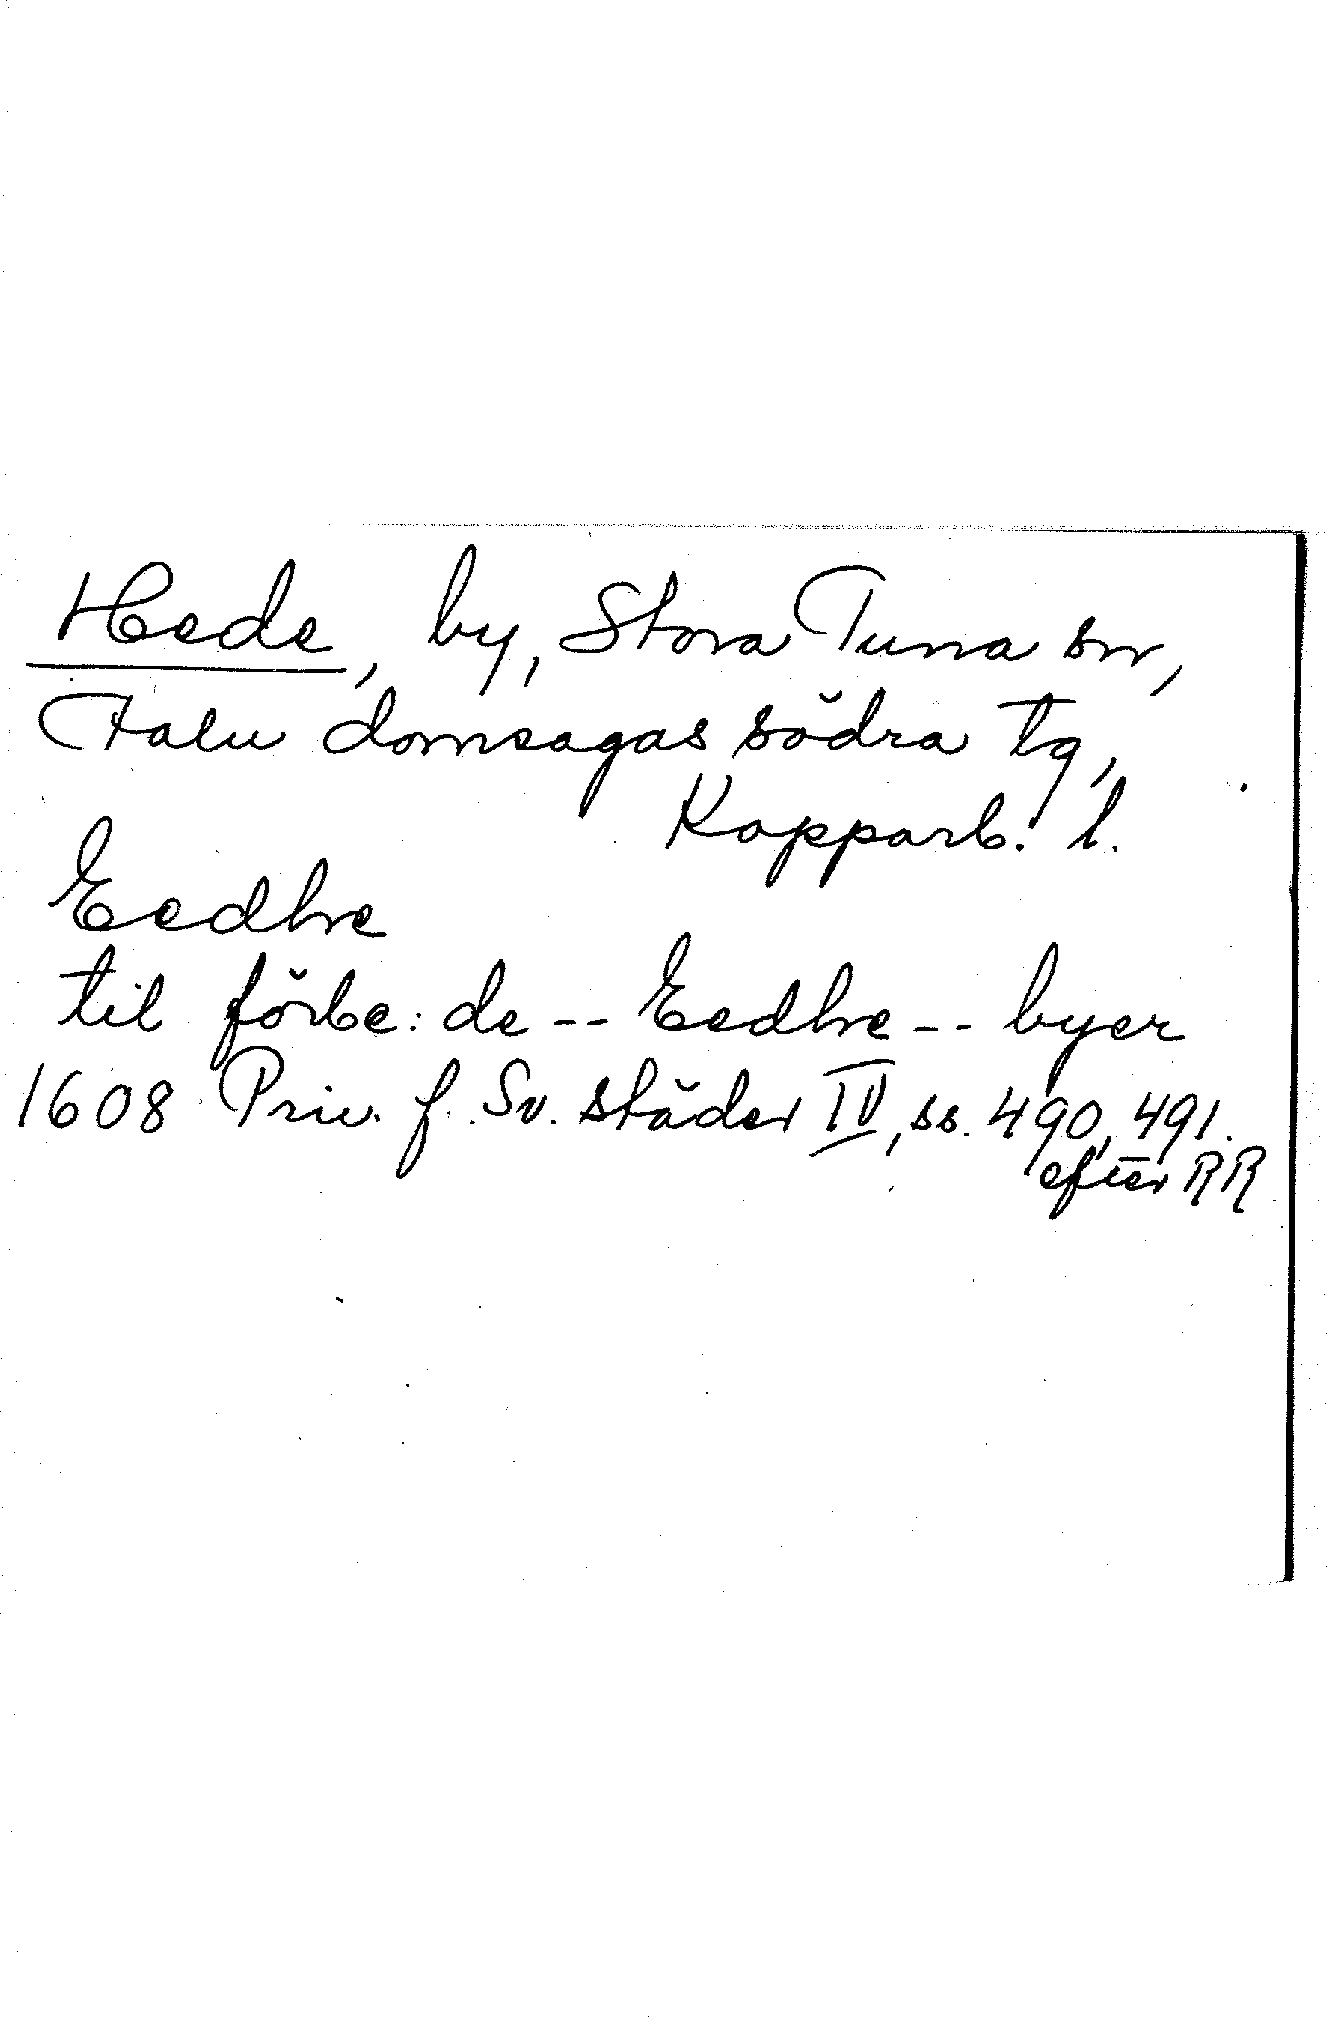 Hede, by, Stora Tuna sn,
Falu domsagas södra tg,
Kopparb. l.
Eedhe
til förbe: de -- Eedhe -- byer
1608 Priv. f. Sv. städer IV, ss. 490, 491.
efter RR